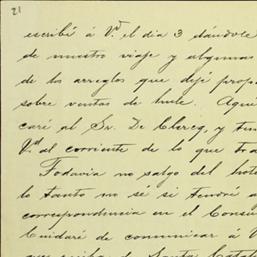 21
escribí á Vd. el día 3 dándole
de nuestro viaje y algunas
de los arreglos que dejé prop
sobre ventas de hule. Aquí
caré al Sr. De Clercq, y ten
Vd. al corriente de lo que tra
Todavia no salgo del hote
lo tanto no sé si tendré a
correspondencia en el Consu
Cuidaré de comunicar á V